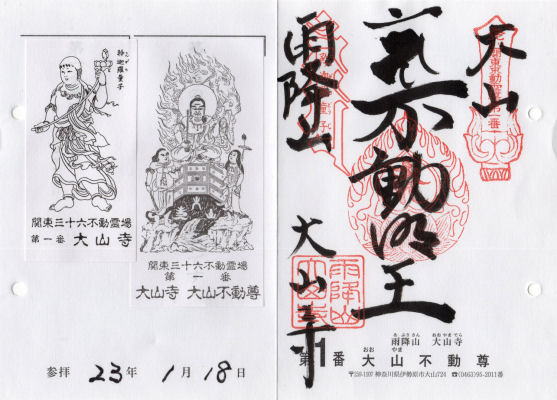 矜迦羅童子
関東三十六不動霊場
第一番 大山寺
関東三十六不動霊場
第一番
大山寺 大山不動尊
参拝 23年 1月 18日
大山
不動明王
雨降山
大山寺
雨降山
あぶりさん おおやまでら
雨降山 大山寺
おお やま
第1番 大山不動尊
〒259-1107 神奈川県伊勢原市大山724 ☎(0463)95-2011番